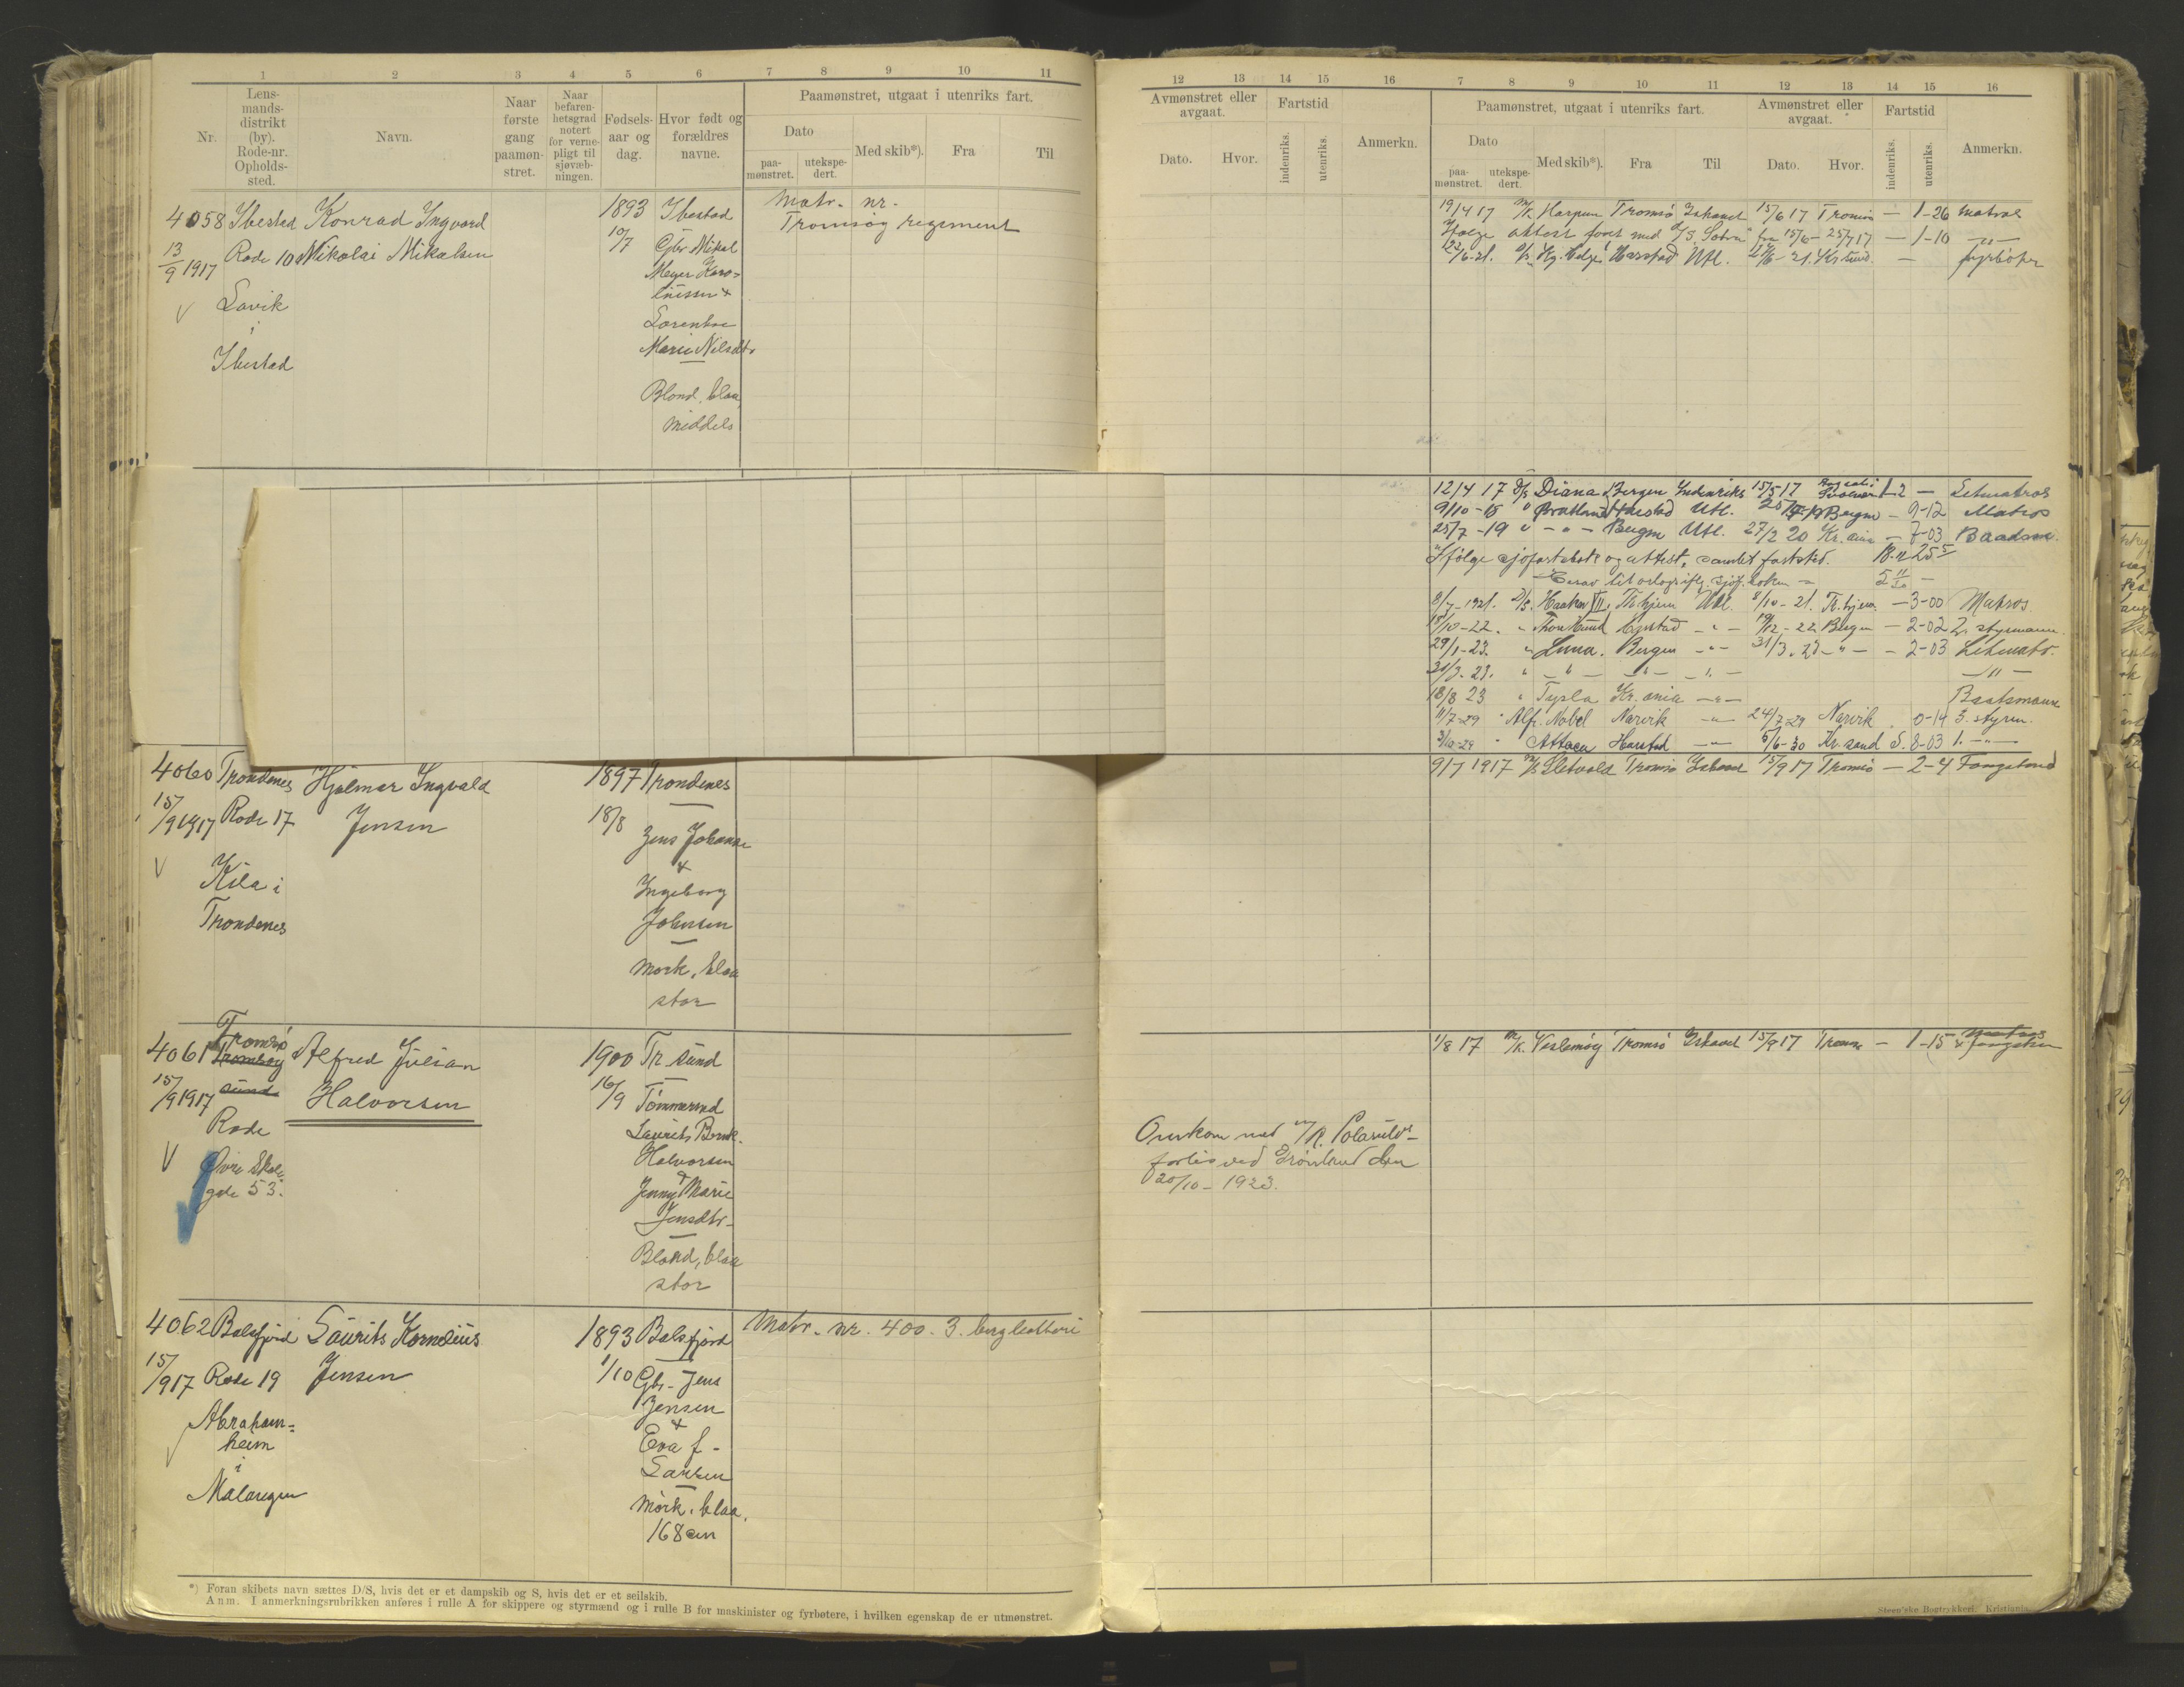 1 2 3 4 5 6 7 8 9 10 11
Nr.
Lens-
mands-
distrikt
(by).
Rode-nr.
Opholds-
sted.
Navn.
Naar
første
gang
paamøn-
stret.
Naar
befaren-
hetsgrad
notert
for verne-
pligt til
sjøvæb-
ningen.
Fødsels-
aar og
dag.
Hvor født og
forældres
navne.
Paamønstret, utgaat i utenriks fart.
Dato
paa-
mønstret.
utekspe-
dert.
Med skib*).
Fra
Til
4058 Ibestad Konrad Ingvard 1893 Ibestad Matr. nr.
13/9 1917 Rode 10 Nikolai Mikalsen 10/7 Gbr Mikal Tromsøg regiment
Meyer Karo-
linssen &
Lavik
Lorentse
i
Marie Nilsdtr
Ibestad
Blond, blaa
middels
4060 Trondenes Hjalmar Ingvald 1897 Trondenes
15/9 1917 Rode 17 Jensen 18/8
Jens Johanne
&
Kila i
Ingeborg
Trondenes
Johnsen
Mørk, blaa
stor
Tromsø
4061 Tromsøy Alfred Julian 1900 Tr. sund
15/9 1917 sund Halvorsen 16/9 Tømmermd
Rode
Laurits Bernt.
Øvre Skole
Halvorsen
gde 53.
&
Jenny Marie
Jensdtr
Blond, blaa
stor
4062 Balsfjord Laurits Kornelius 1893 Balsfjord Matr. nr. 400. 3. bergbatteri
15/9 17 Rode 19 Jensen 1/10 Gbr. Jens
Jensen
Abraham-
&
heim
Eva f.
i
Larsen
Malangen
Mørk, blaa,
168 cm
*) Foran skibets navn sættes D/S, hvis det er et dampskib og S, hvis det er et seilskib.
Anm. I anmerkningsrubrikken anføres i rulle A for skippere og styrmænd og i rulle B for maskinister og fyrbøtere, i hvilken egenskap de er utmønstret.
12 13 14 15 16 7 8 9 10 11 12 13 14 15 16
Avmønstret eller
avgaat.
Dato. Hvor.
Fartstid
indenriks. utenriks.
Anmerkn.
Paamønstret, utgaat i utenriks fart.
Dato
paa-
mønstret.
utekspe-
dert.
Med skib*). Fra Til
Avmønstret eller
avgaat.
Dato. Hvor.
Fartstid
indenriks. utenriks.
Anmerkn.
19/4 17 M/K Harpun Tromsø Ishavet 15/6 17 Tromsø — 1-26 Matros
Ifølge attest faret med D/S "Sotra" fra 15/6 - 25/7 17 — 1-10 — " —
Harstad Utl. — fyrbøter
12/4 17 D/S Diana Bergen Indenriks 15/5 17 Svolvær 1-2 — Letmatros
9/10-18 " Bratland Harstad Utl. Bergen — 9-12 Matros
25/7-19 " — " — Bergen Utl. 27/2 20 Kr.ania — 7-03 Baadsm.
Ifølge sjøfartsbok og attest, samlet fartstid.
8/7-1921. D/S. Haakon VII, Tr.hjem Utl. 8/10-21. Tr.hjem — 3-00 Matros.
Harstad — " — 19/12-22 Bergen — 2-02 2. styrmann.
29/1-23. " Luna. Bergen — " — 31/3. 23 — " — — 2-03 Letmatr.
31/3-23. " — " — — " — — " — — " —
18/8 23 " Tysla Kr.ania — " — Baatsmann
11/7-29 " Alfr. Nobel Narvik — " — 24/7-29 Narvik. 0-14 3. styrm.
3/10-29 " Harstad — " — 6/6-30 Kr.sand S. 8-03 1. — " —
9/7 1917 M/K Sletvold Tromsø Ishavet 15/9 17 Tromsø — 2-4 Fangstmd
1/8 17 M/K. Veslemøy Tromsø Ishavet 15/9 17 Tromsø — 1-15 Matros
Omkom med M/K. Polarulv's
forlis ved Grønland den
20/10-1923.
Steen'ske Bogtrykkeri, Kristiania